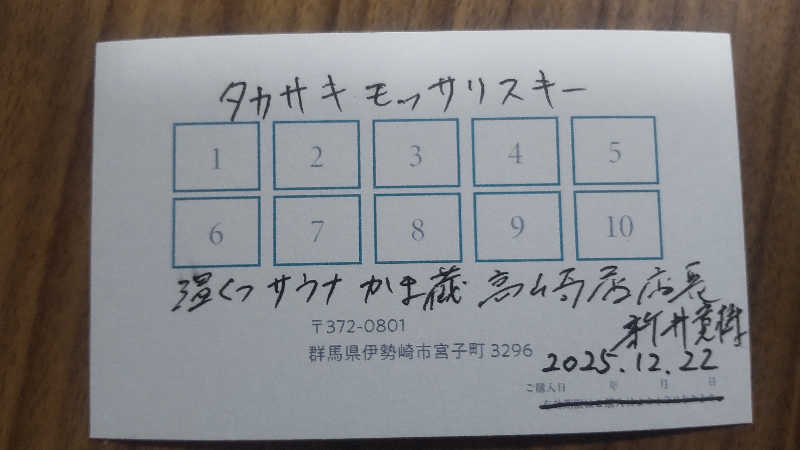 タカサキモッサリスキー
1 2 3 4 5
6 7 8 9 10
温くつサウナ かま蔵 高崎店 店長
新井寛樹
〒372-0801
群馬県伊勢崎市宮子町 3296
2025.12.22
ご購入日 年 月 日